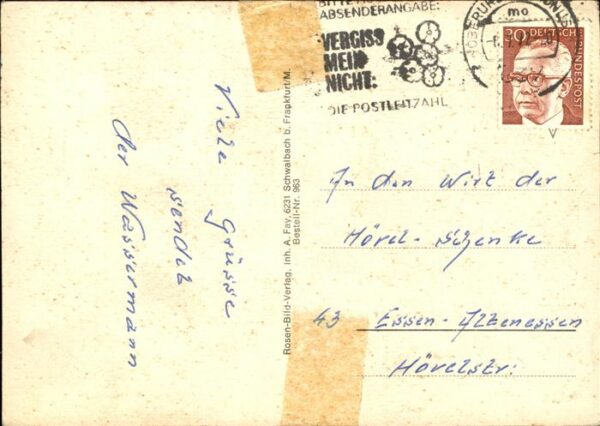 Viele Grüsse
sendet
der Wassermann
Rosen-Bild-Verlag, Inh. A. Fay, 6231 Schwalbach b. Frankfurt/M.
Bestell-Nr. 963
ABSENDERANGABE:
VERGISS
MEIN
NICHT:
DIE POSTLEITZAHL
mo
30 DEUTSCHE BUNDESPOST
An den Wirt der
Hövel-Schenke
43 Essen-Altenessen
Hövelstr: